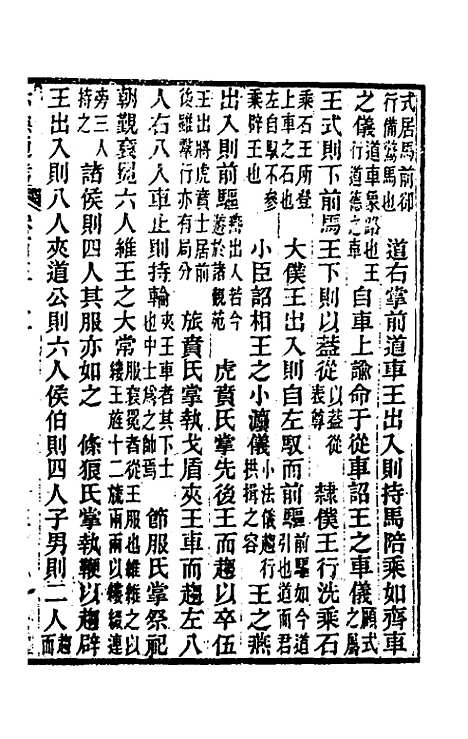 式居馬前卻行備驚馬也 道右掌前道車王出入則持馬陪乘如齊車
之儀道車象路也王行道德之車 自車上諭命于從車詔王之車儀顧式之屬
王式則下前馬王下則以蓋從以蓋從表尊 隸僕王行洗乘石
乘石王所登上車之石也 大僕王出入則自左馭而前驅前驅如今道引也道而君
左自馭不參乘辟王也 小臣詔相王之小灋儀小法儀趨行拱揖之容 王之燕
出入則前驅燕出入若今游於諸觀苑 虎賁氏掌先後王而趨以卒伍
王出將虎賁士居前後雖羣行亦有局分 旅賁氏掌執戈盾夾王車而趨左八
人右八人車止則持輪夾王車者其下士也中士爲之帥焉 節服氏掌祭祀
朝覲袞冕六人維王之大常服袞冕者從王服也維維之以縷王旌十二旒兩兩以縷綴連
旁三人 諸侯則四人其服亦如之 條狼氏掌執鞭以趨辟
王出入則八人夾道公則六人侯伯則四人子男則二人趨而